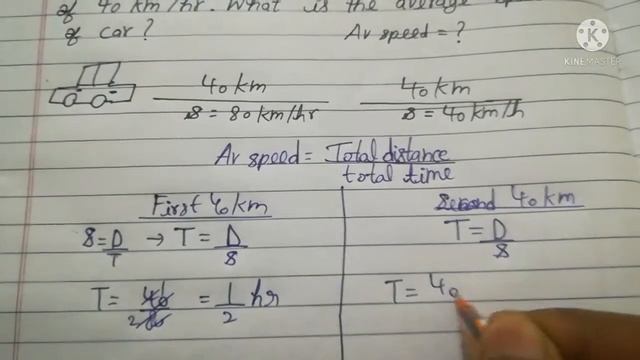 of 40 km/hr. What is the average
of car? Av speed = ?
KINEMASTER
40 km 40 km
s = 80 km/hr s = 40 km/h
Av speed = Total distance
total time
First 40 km Second 40 km
s = D/T → T = D/s T = D/s
T = 40/80 = 1/2 hr T = 40